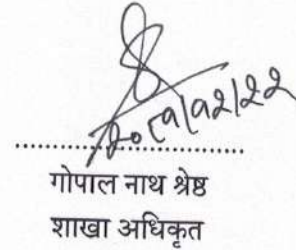 २०८१/१२/२२
....................................
गोपाल नाथ श्रेष्ठ
शाखा अधिकृत